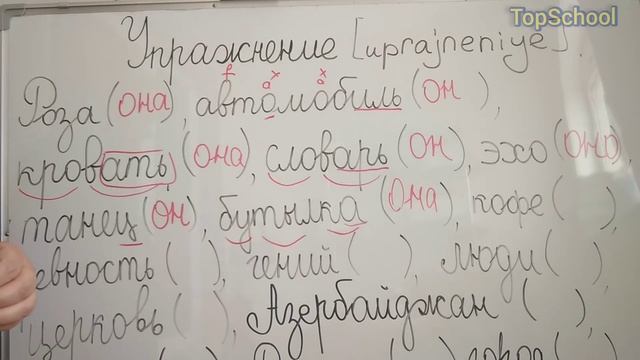 TopSchool
Упражнение [uprajneniye].
f x x
a a
Роза (она), автомобиль (он ),
кровать (она), словарь (он), эхо (оно),
танец (он), бутылка (она), кофе ( ),
гений ( ), люди ( ),
церковь ( ), Азербайджан ( ),